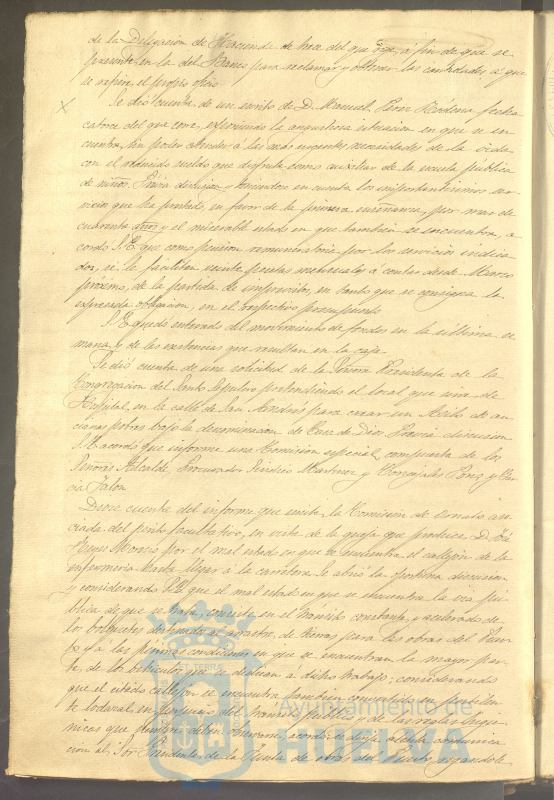 de la Delegación de Hacienda de hoce del que rige, á fin de que se
presente en la del Banco para reclamar y obtener las cantidades á que
se refiere el propio oficio.
Se dió cuenta de un escrito de D. Manuel Perez Ródenas fecha
catorce del que corre, esponiendo la angustiosa situacion en que se en-
cuentra, sin poder atender á las más urgentes necesidades de la vida
con el reducido sueldo que disfruta como auxiliar de la escuela pública
de niños. Prévia discusion y teniendo en cuenta los importantísimos ser-
vicios que ha prestado en favor de la primera enseñanza, por mas de
cuarenta años y el miserable estado en que tambien se encuentra, a-
cordó S.E. que como pension remuneratoria por los servicios indica-
dos, se le faciliten veinte pesetas mensuales á contar desde Marzo
próximo, de la partida de imprevistos, en tanto que se consigna la
espresada obligacion, en el respectivo presupuesto.
S.E. quedó enterado del movimiento de fondos en la última se-
mana, y de las existencias que resultan en la caja.
Se dió cuenta de una solicitud de la Señora Presidenta de la
Congregacion del Santo Sepulcro pretendiendo el local que era de
Hospital, en la calle de San Andrés para crear un Asilo de an-
cianas pobres bajo la denominacion de Casa de Dios. Prévia discusion
S.E. acordó que informe una Comision especial, compuesta de los
Señores Alcalde, Procurador Síndico Martinez y Concejales Perez y Gar-
cía Jalon.
Dióse cuenta del informe que emite la Comision de Ornato aso-
ciada del perito facultativo, en vista de la queja que produce D. José
Reyes Moreno por el mal estado en que se encuentra el callejon de la
enfermeria hasta llegar á la carretera. Se abrió la oportuna discusion
y considerando S.E. que el mal estado en que se encuentra la via pú-
blica de que se trata, consiste en el tránsito constante, y acelerado de
los volquetes destinados al arrastre, de tierras para las obras del Puer-
to y á las pésimas condiciones en que se encuentran la mayor par-
te, de los vehículos que se dedican á dicho trabajo; considerando
que el citado callejon se encuentra tambien convertido en pestilen-
te lodazal en perjuicio del tránsito público y de las reglas higié-
nicas que siempre deben observarse, acordó se dirija atenta comunica-
cion al Sor. Presidente de la Junta de obras del Puerto, rogandole
Ayuntamiento de
HUELVA